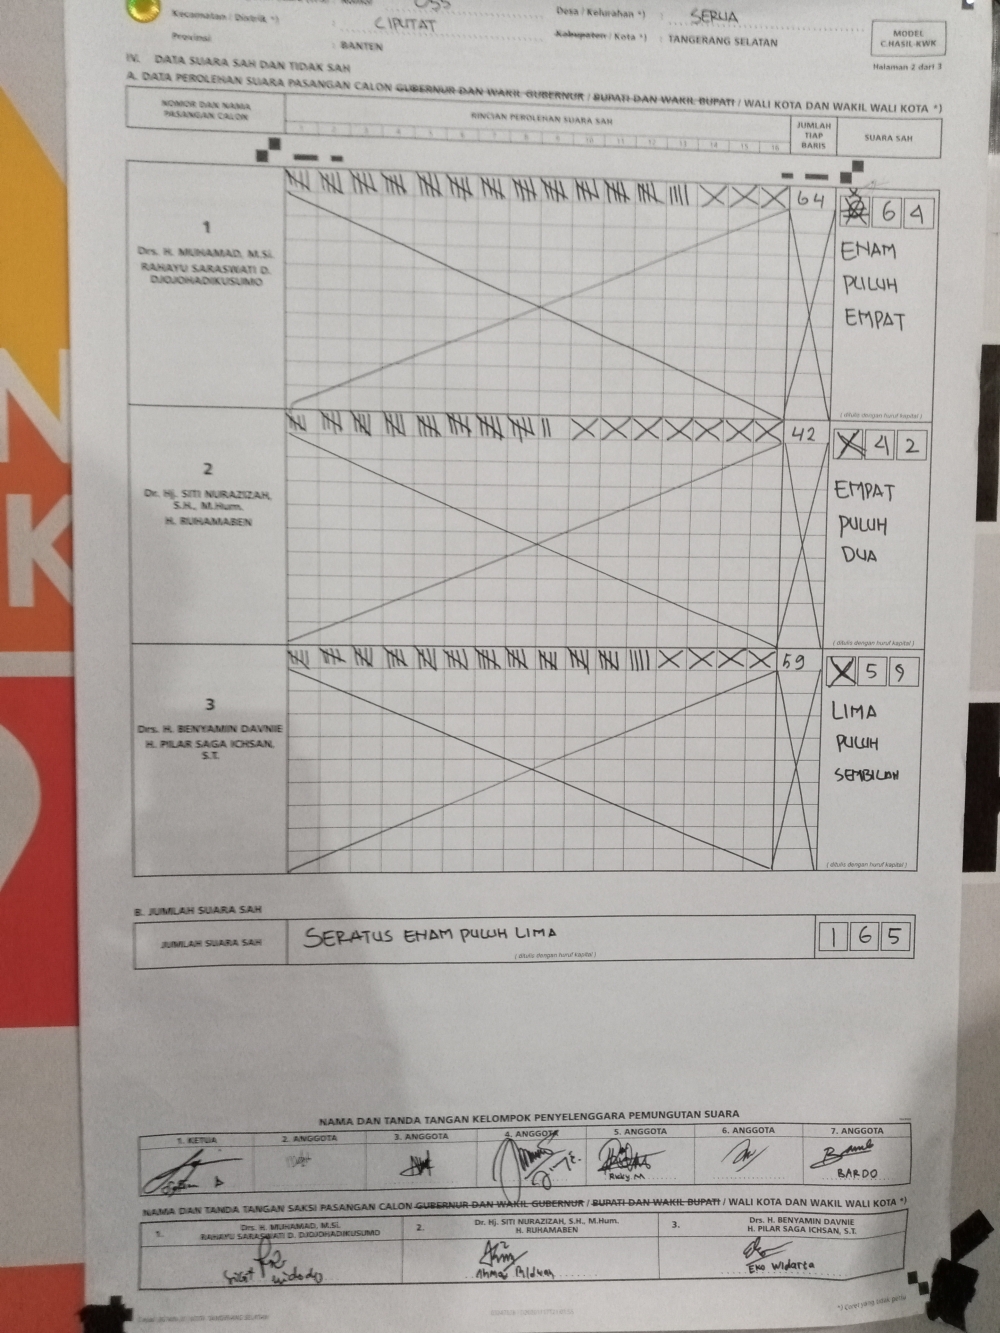 055
Kecamatan / Distrik *) : CIPUTAT
Desa / Kelurahan *) : SERUA
Provinsi : BANTEN
Kabupaten / Kota *) : TANGERANG SELATAN
MODEL
C.HASIL-KWK
Halaman 2 dari 3
IV. DATA SUARA SAH DAN TIDAK SAH
A. DATA PEROLEHAN SUARA PASANGAN CALON GUBERNUR DAN WAKIL GUBERNUR / BUPATI DAN WAKIL BUPATI / WALI KOTA DAN WAKIL WALI KOTA *)
NOMOR DAN NAMA
PASANGAN CALON
RINCIAN PEROLEHAN SUARA SAH
JUMLAH
TIAP
BARIS
SUARA SAH
1 2 3 4 5 6 7 8 9 10 11 12 13 14 15 16
1
Drs. H. MUHAMAD, M.Si.
RAHAYU SARASWATI D.
DJOJOHADIKUSUMO
64
6 4
ENAM
PULUH
EMPAT
( ditulis dengan huruf kapital )
2
Dr. Hj. SITI NURAZIZAH,
S.H., M.Hum.
H. RUHAMABEN
42
X 4 2
EMPAT
PULUH
DUA
( ditulis dengan huruf kapital )
3
Drs. H. BENYAMIN DAVNIE
H. PILAR SAGA ICHSAN,
S.T.
59
X 5 9
LIMA
PULUH
SEMBILAN
( ditulis dengan huruf kapital )
B. JUMLAH SUARA SAH
JUMLAH SUARA SAH
SERATUS ENAM PULUH LIMA
( ditulis dengan huruf kapital )
1 6 5
NAMA DAN TANDA TANGAN KELOMPOK PENYELENGGARA PEMUNGUTAN SUARA
1. KETUA
2. ANGGOTA
3. ANGGOTA
4. ANGGOTA
5. ANGGOTA
6. ANGGOTA
7. ANGGOTA
Ricky M
BARDO
NAMA DAN TANDA TANGAN SAKSI PASANGAN CALON GUBERNUR DAN WAKIL GUBERNUR / BUPATI DAN WAKIL BUPATI / WALI KOTA DAN WAKIL WALI KOTA *)
1. Drs. H. MUHAMAD, M.Si.
RAHAYU SARASWATI D. DJOJOHADIKUSUMO
2. Dr. Hj. SITI NURAZIZAH, S.H., M.Hum.
H. RUHAMABEN
3. Drs. H. BENYAMIN DAVNIE
H. PILAR SAGA ICHSAN, S.T.
Eko Widarta
*) Coret yang tidak perlu